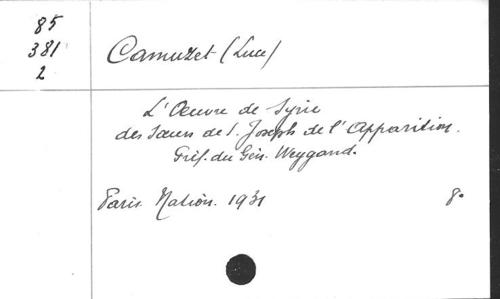 85
381
2
Camuzet (Luce)
L'Œuvre de Syrie
des Sœurs de S. Joseph de l'Apparition.
Préf. du Gén. Weygand.
Paris. Nation. 1931 8°